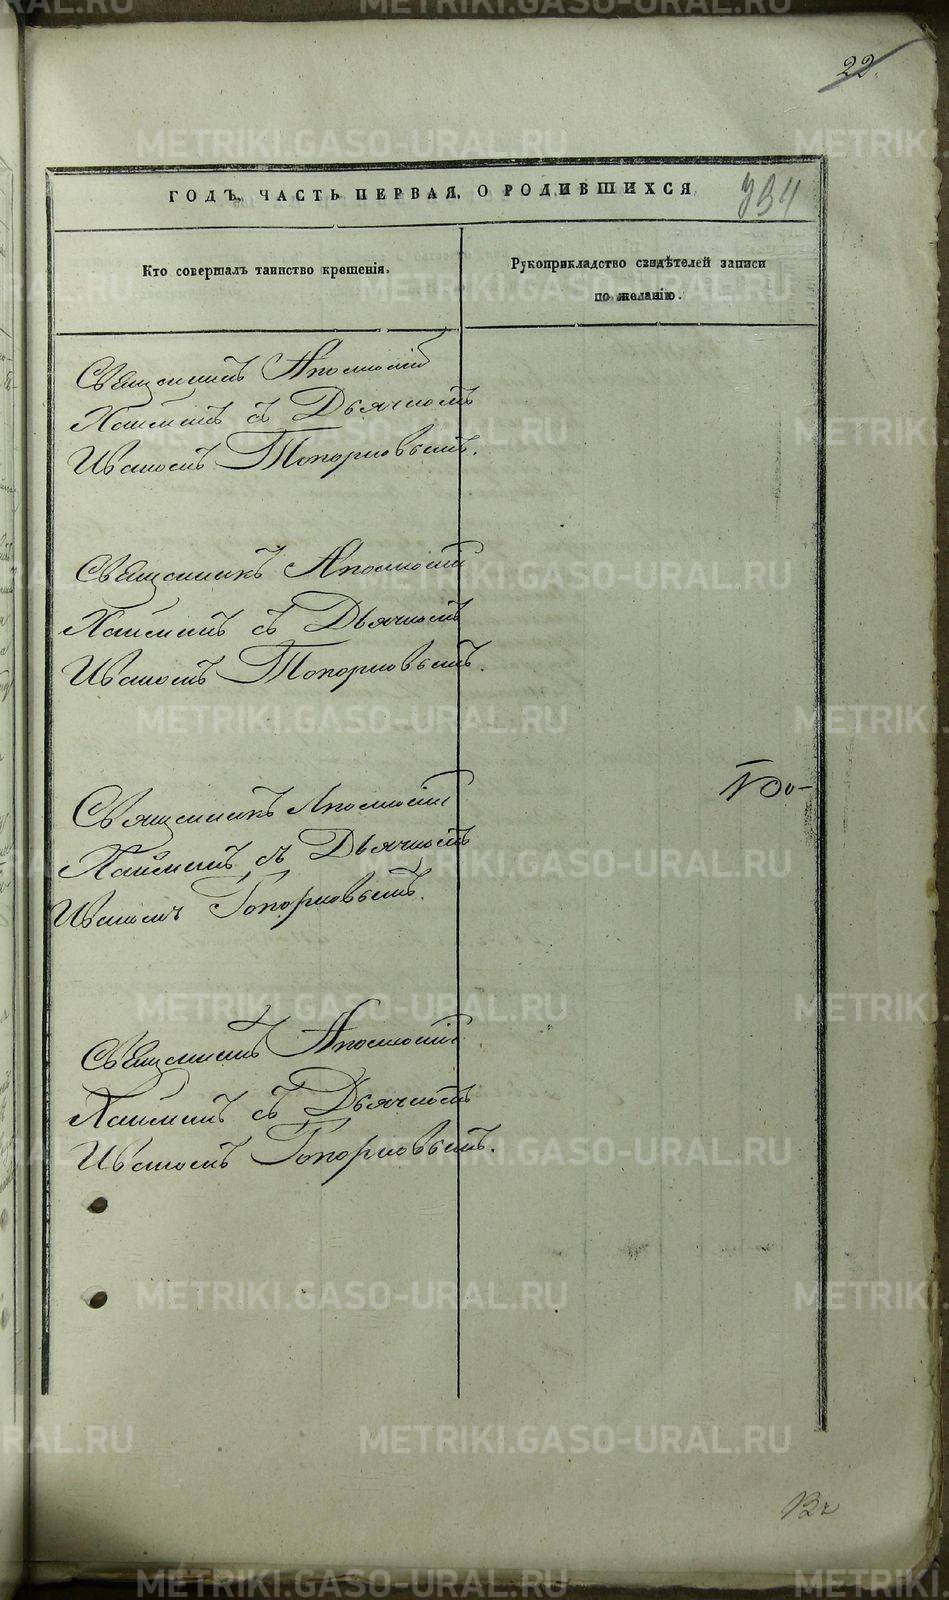 22.
ГОДЪ, ЧАСТЬ ПЕРВАЯ, О РОДИВШИХСЯ 394
Кто совершалъ таинство крещенія.
Рукоприкладство свидѣтелей записи
по желанію.
Священникъ Аполлоній
съ Дьячкомъ
Иваномъ Топорковымъ.
Священникъ Аполлоній
съ Дьячкомъ
Иваномъ Топорковымъ.
Священникъ Аполлоній
съ Дьячкомъ
Иваномъ Топорковымъ.
Священникъ Аполлоній
съ Дьячкомъ
Иваномъ Топорковымъ.
METRIKI.GASO-URAL.RU